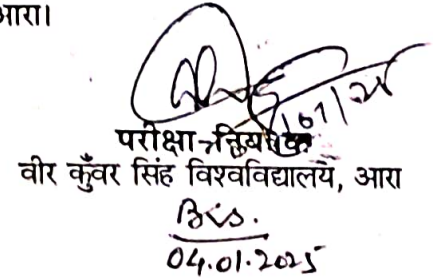 आरा।
परीक्षा नियंत्रक
वीर कुँवर सिंह विश्वविद्यालय, आरा
04.01.2025